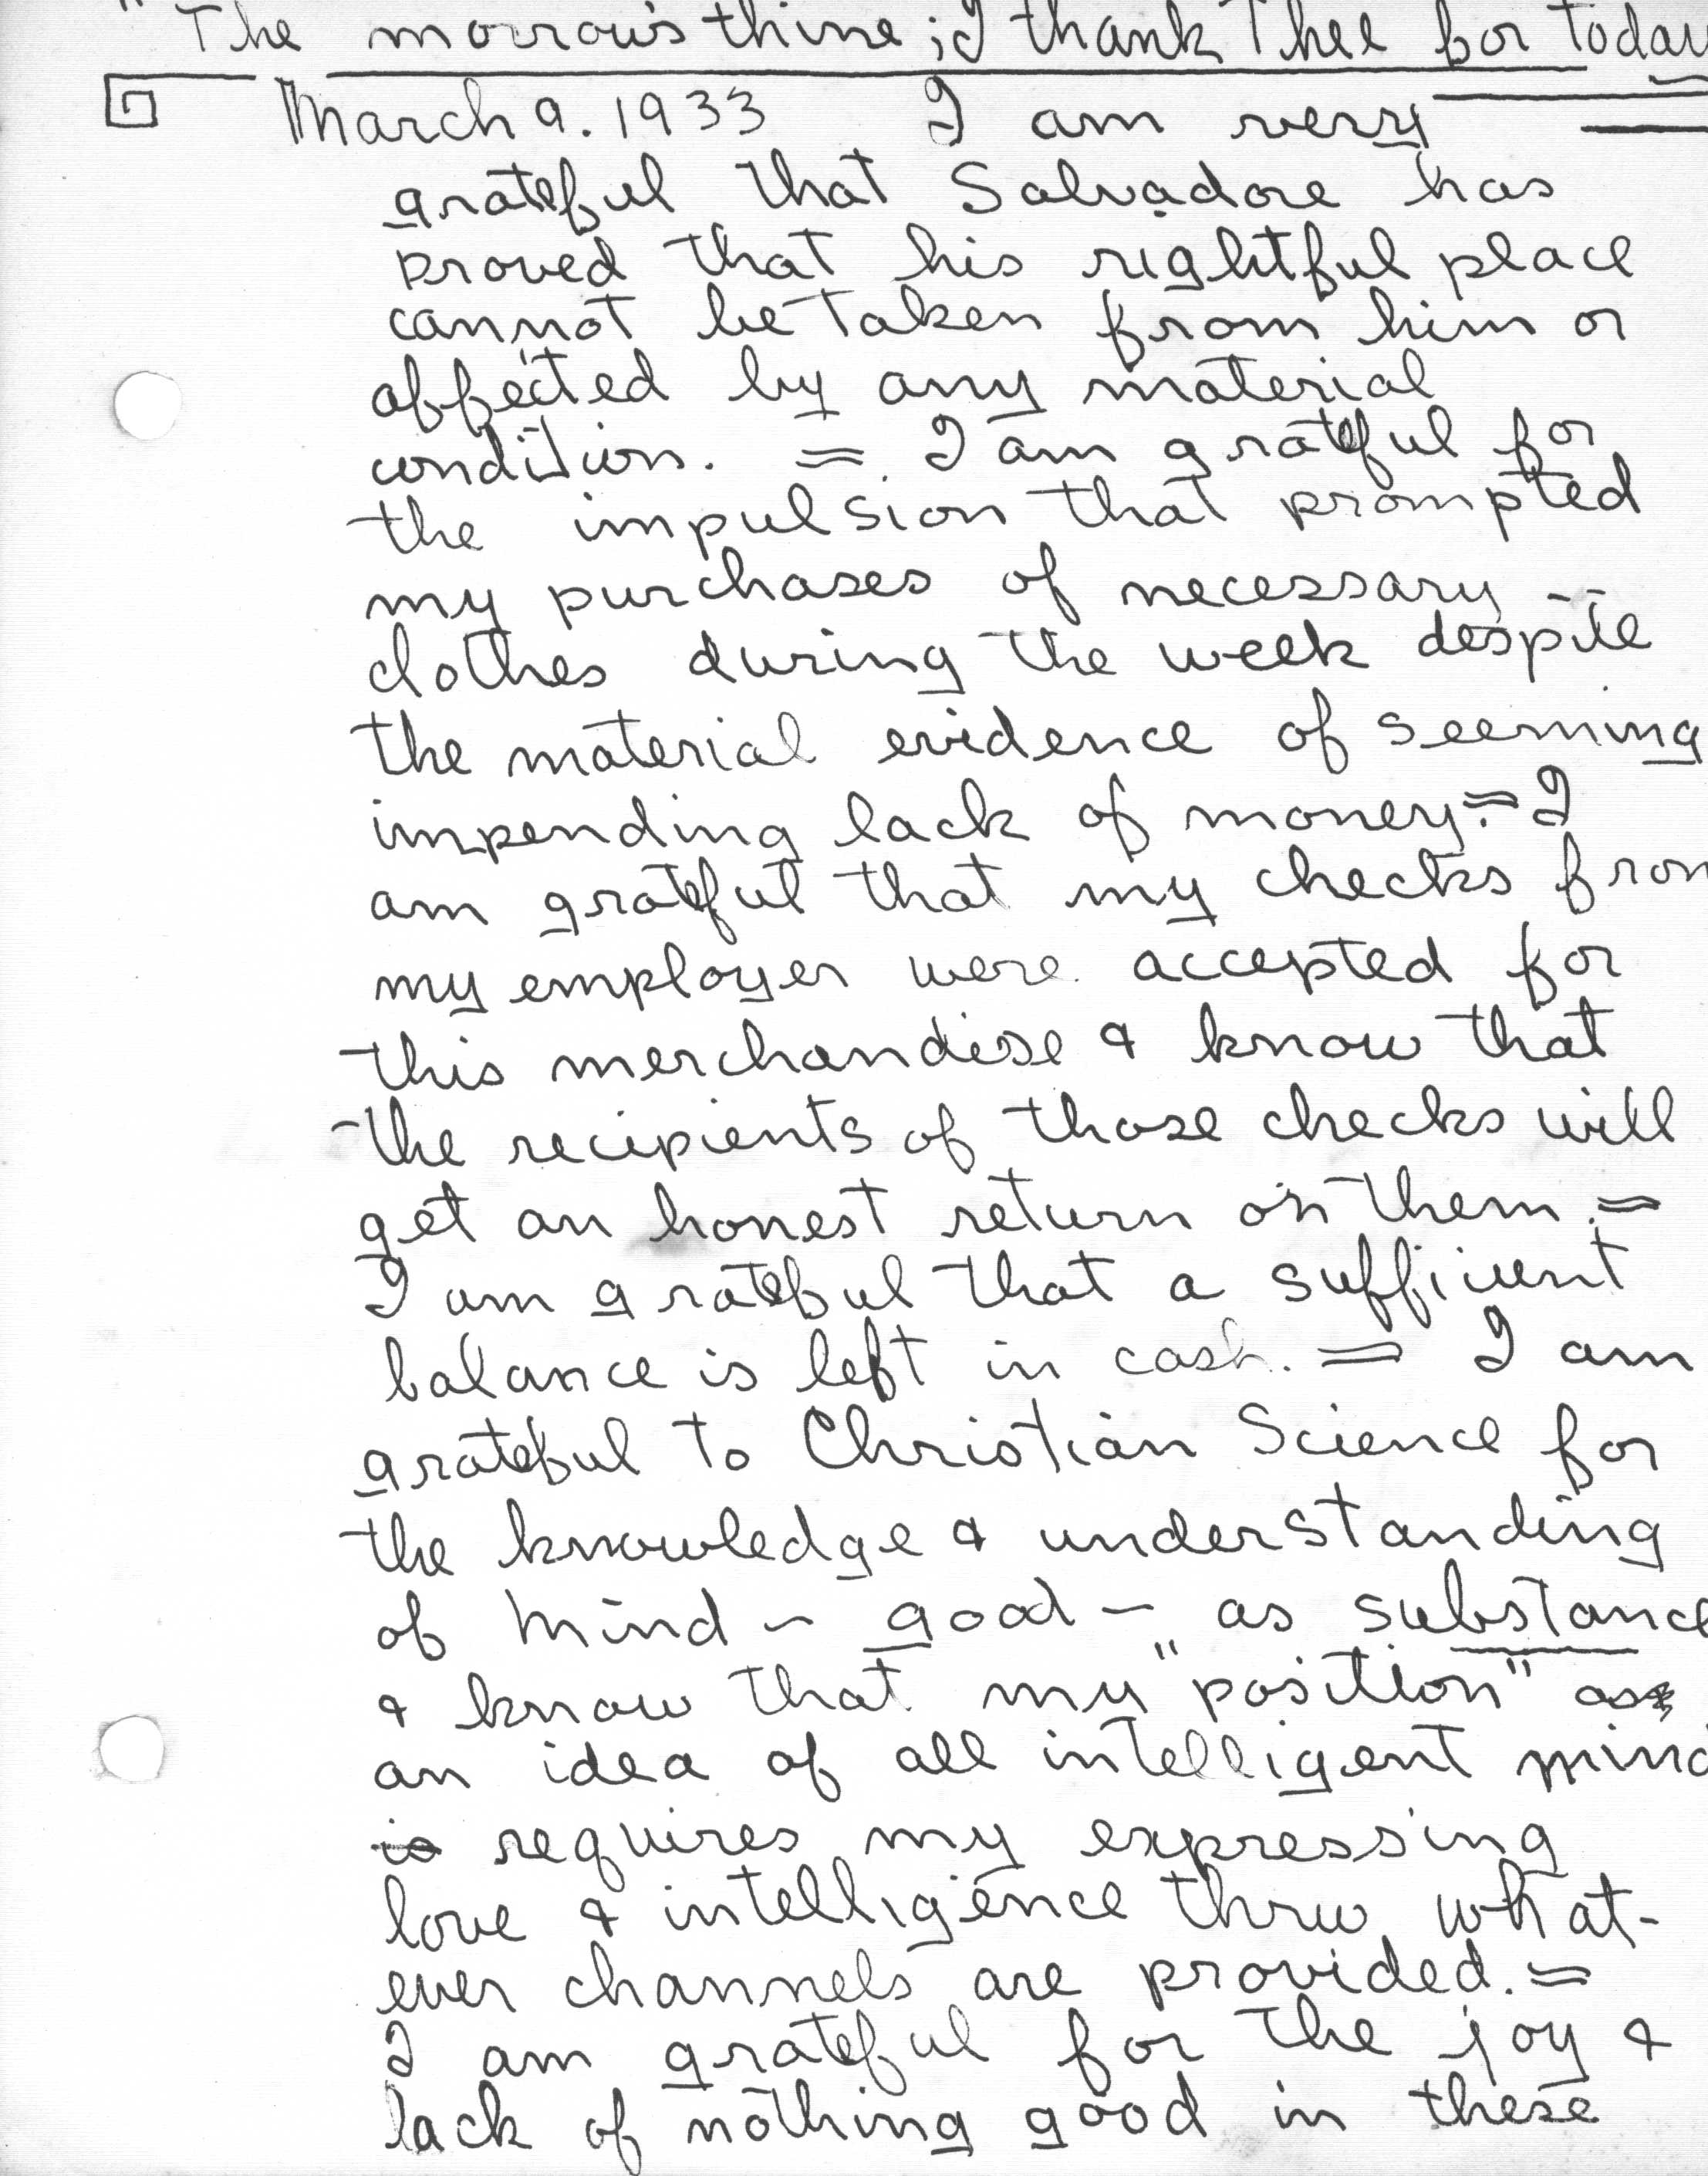 "The morrow's thine; I thank Thee for today
March 9. 1933 I am very
grateful that Salvadore has
proved that his rightful place
cannot be taken from him or
affected by any material
condition. = I am grateful for
the impulsion that prompted
my purchases of necessary
clothes during the week despite
the material evidence of seeming
impending lack of money. = I
am grateful that my checks from
my employer were accepted for
this merchandise & know that
the recipients of those checks will
get an honest return on them. =
I am grateful that a sufficient
balance is left in cash. = I am
grateful to Christian Science for
the knowledge & understanding
of Mind - good - as substance
& know that my "position" as
an idea of all intelligent mind
is requires my expressing
love & intelligence thru what-
ever channels are provided. =
I am grateful for the joy &
lack of nothing good in these